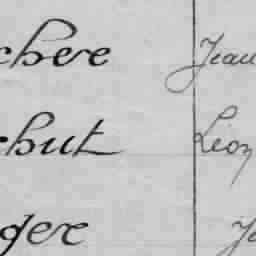 chere Jean
chut Léon
ger